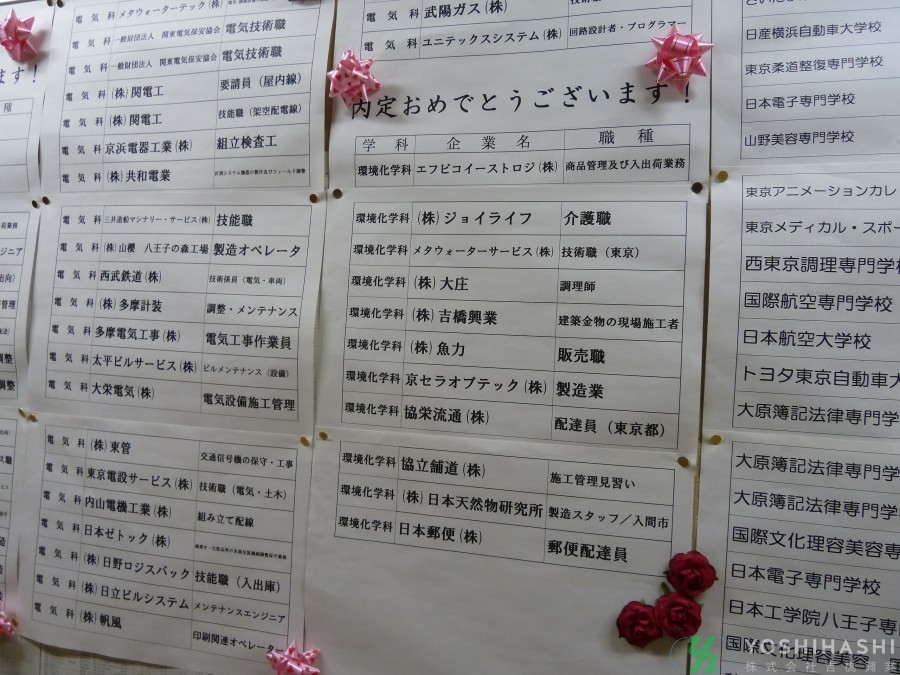 電気科 メタウォーターテック(株)
電気科 一般財団法人 関東電気保安協会 電気技術職
電気科 一般財団法人 関東電気保安協会 電気技術職
電気科 (株)関電工 要請員(屋内線)
電気科 (株)関電工 技能職(架空配電線)
電気科 京浜電器工業(株) 組立検査工
電気科 (株)共和電業
電気科 三井造船マシナリー・サービス(株) 技能職
電気科 (株)山櫻 八王子の森工場 製造オペレータ
電気科 西武鉄道(株) 技術係員(電気・車両)
電気科 (株)多摩計装 調整・メンテナンス
電気科 多摩電気工事(株) 電気工事作業員
電気科 太平ビルサービス(株) ビルメンテナンス(設備)
電気科 大栄電気(株) 電気設備施工管理
電気科 (株)東管 交通信号機の保守・工事
電気科 東京電設サービス(株) 技術職(電気・土木)
電気科 内山電機工業(株) 組み立て配線
電気科 日本ゼトック(株)
電気科 (株)日野ロジスパック 技能職(入出庫)
電気科 (株)日立ビルシステム メンテナンスエンジニア
電気科 (株)帆風 印刷関連オペレーター
電気科 武陽ガス(株)
電気科 ユニテックスシステム(株) 回路設計者・プログラマー
内定おめでとうございます!
学科 企業名 職種
環境化学科 エフピコイーストロジ(株) 商品管理及び入出荷業務
環境化学科 (株)ジョイライフ 介護職
環境化学科 メタウォーターサービス(株) 技術職(東京)
環境化学科 (株)大庄 調理師
環境化学科 (株)吉橋興業 建築金物の現場施工者
環境化学科 (株)魚力 販売職
環境化学科 京セラオプテック(株) 製造業
環境化学科 協栄流通(株) 配達員(東京都)
環境化学科 協立舗道(株) 施工管理見習い
環境化学科 (株)日本天然物研究所 製造スタッフ/入間市
環境化学科 日本郵便(株) 郵便配達員
日産横浜自動車大学校
東京柔道整復専門学校
日本電子専門学校
山野美容専門学校
東京アニメーションカレ
東京メディカル・スポー
西東京調理専門学校
国際航空専門学校
日本航空大学校
トヨタ東京自動車大
大原簿記法律専門学
大原簿記法律専門学
大原簿記法律専門学
国際文化理容美容専
日本電子専門学校
日本工学院八王子専
国際文化理容美容
YOSHIHASHI
株式会社吉橋興業